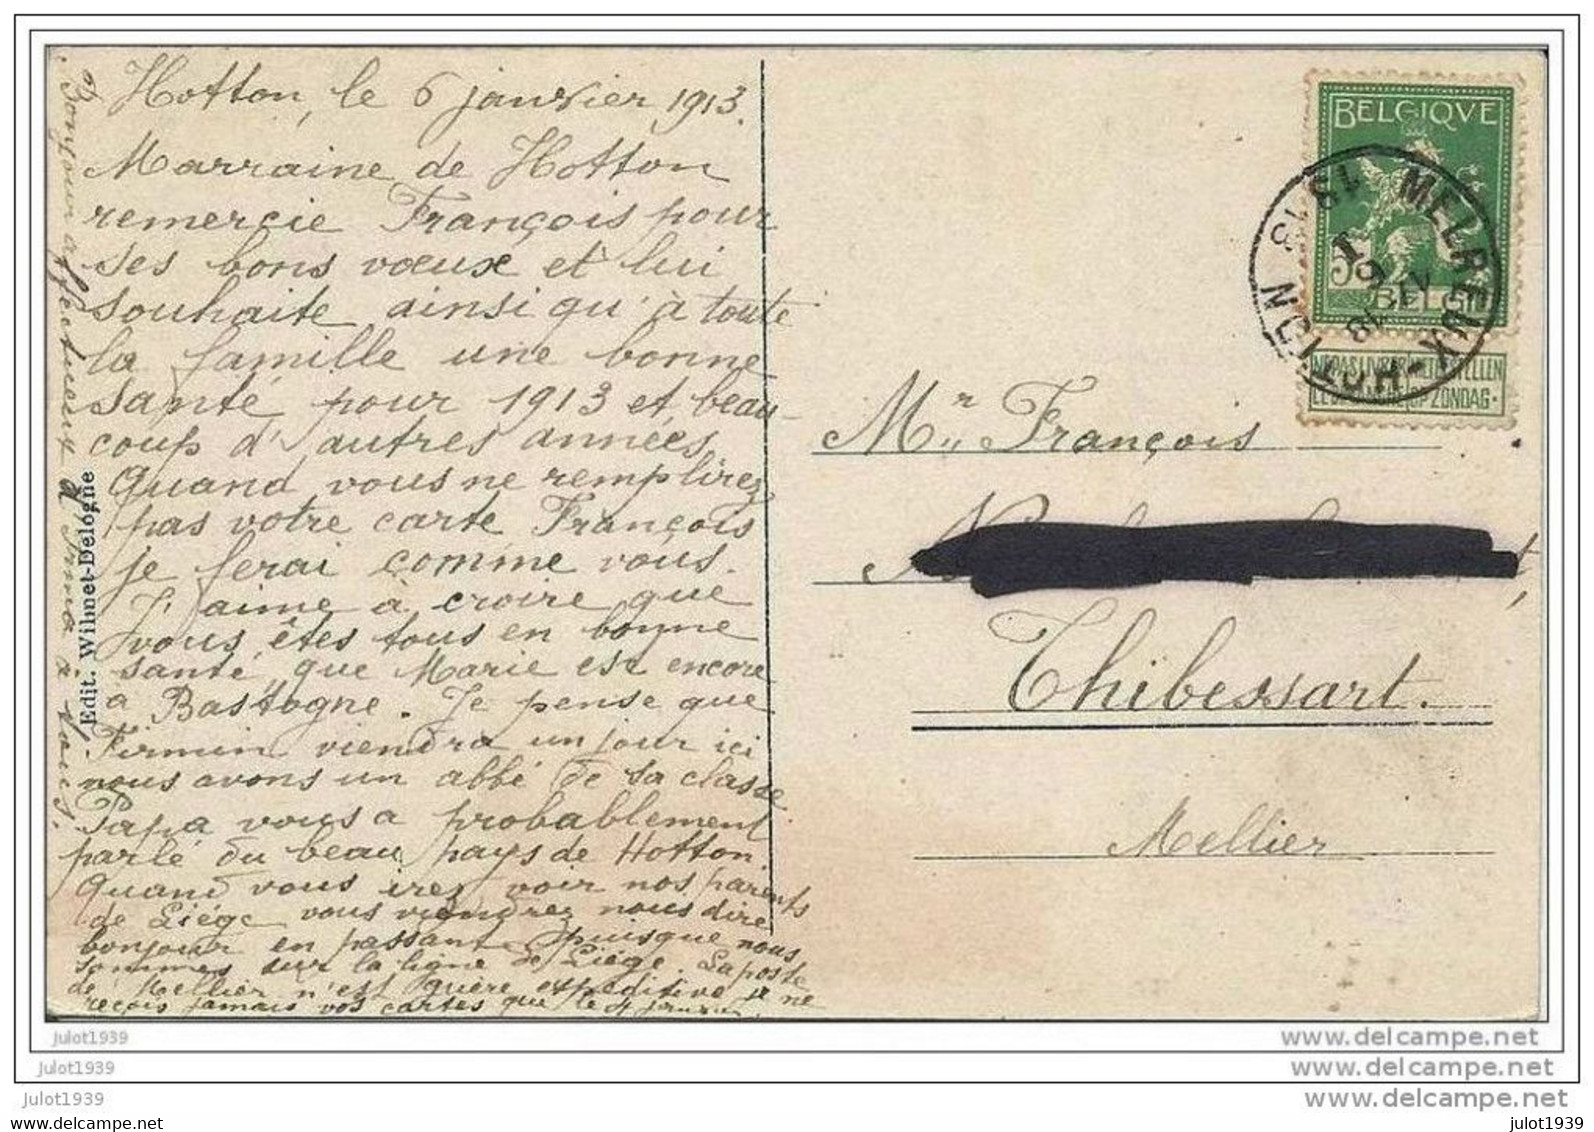 Hotton, le 6 janvier 1913.
Marraine de Hotton
remercie François pour
ses bons vœux et lui
souhaite ainsi qu'à toute
la famille une bonne
santé pour 1913 et beau-
coup d'autres années
Quand vous ne remplirez
pas votre carte François
je ferai comme vous.
J'aime à croire que
vous êtes tous en bonne
santé, que Marie est encore
à Bastogne. Je pense que
Firmin viendra un jour ici
nous avons un abbé de sa classe
Papa vous a probablement
parlé du beau pays de Hotton.
Quand vous irez voir nos parents
de Liége vous viendrez nous dire
bonjour en passant puisque nous
sommes sur la ligne de Liége. La poste
de Mellier n'est guère expéditive je ne
reçois jamais vos cartes que le 4 janvier.
Bonjour affectueux d'Irma à vous.
Edit. Wilmet-Delogne
BELGIQVE
5c
BELGIË
NE PAS LIVRER NIET BESTELLEN
LE DIMANCHE OP ZONDAG
MELREUX-HOTTON
Mr François
Thibessart.
Mellier
julot1939
www.delcampe.net
julot1939
www.delcampe.net
julot1939
www.delcampe.net
julot1939
julot1939